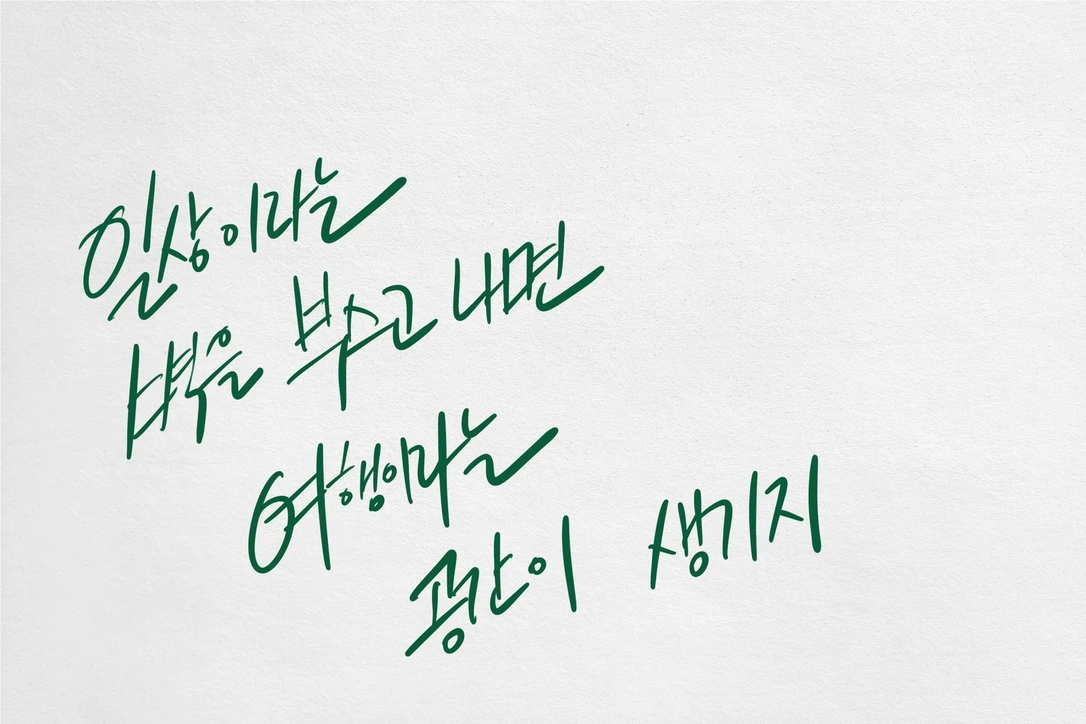 일상이라는
벽을 부수고 나면
여행이라는
공간이 생기지